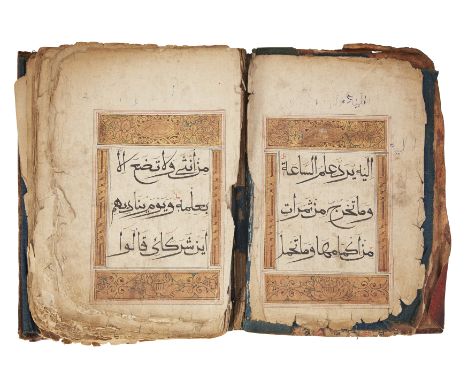 اليه يرد علم الساعة
وما تخرج من ثمرات
من اكمامها وما تحمل
من انثى ولا تضع الا
بعلمه ويوم يناديهم
اين شركاى قالوا